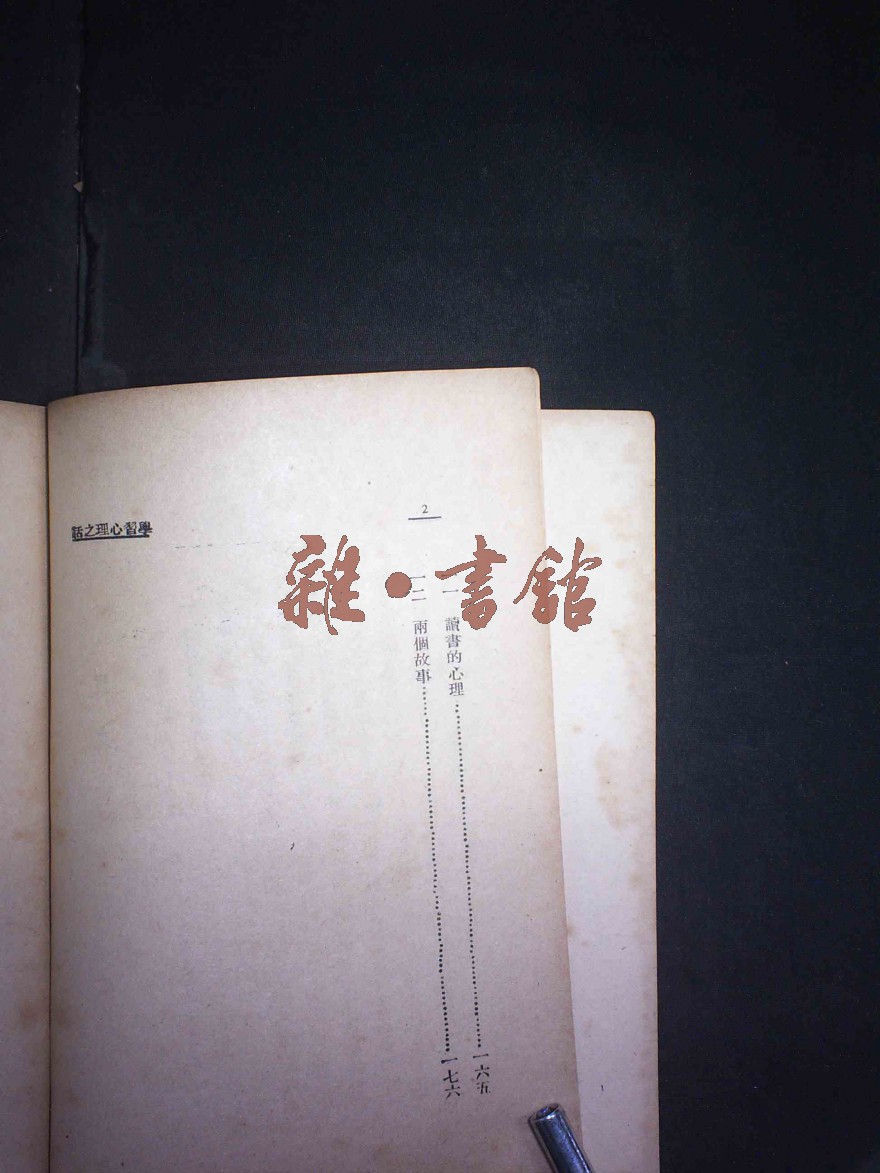 2
學習心理之話
雜·書館
一一 讀書的心理……一六五
一二 兩個故事……一七六